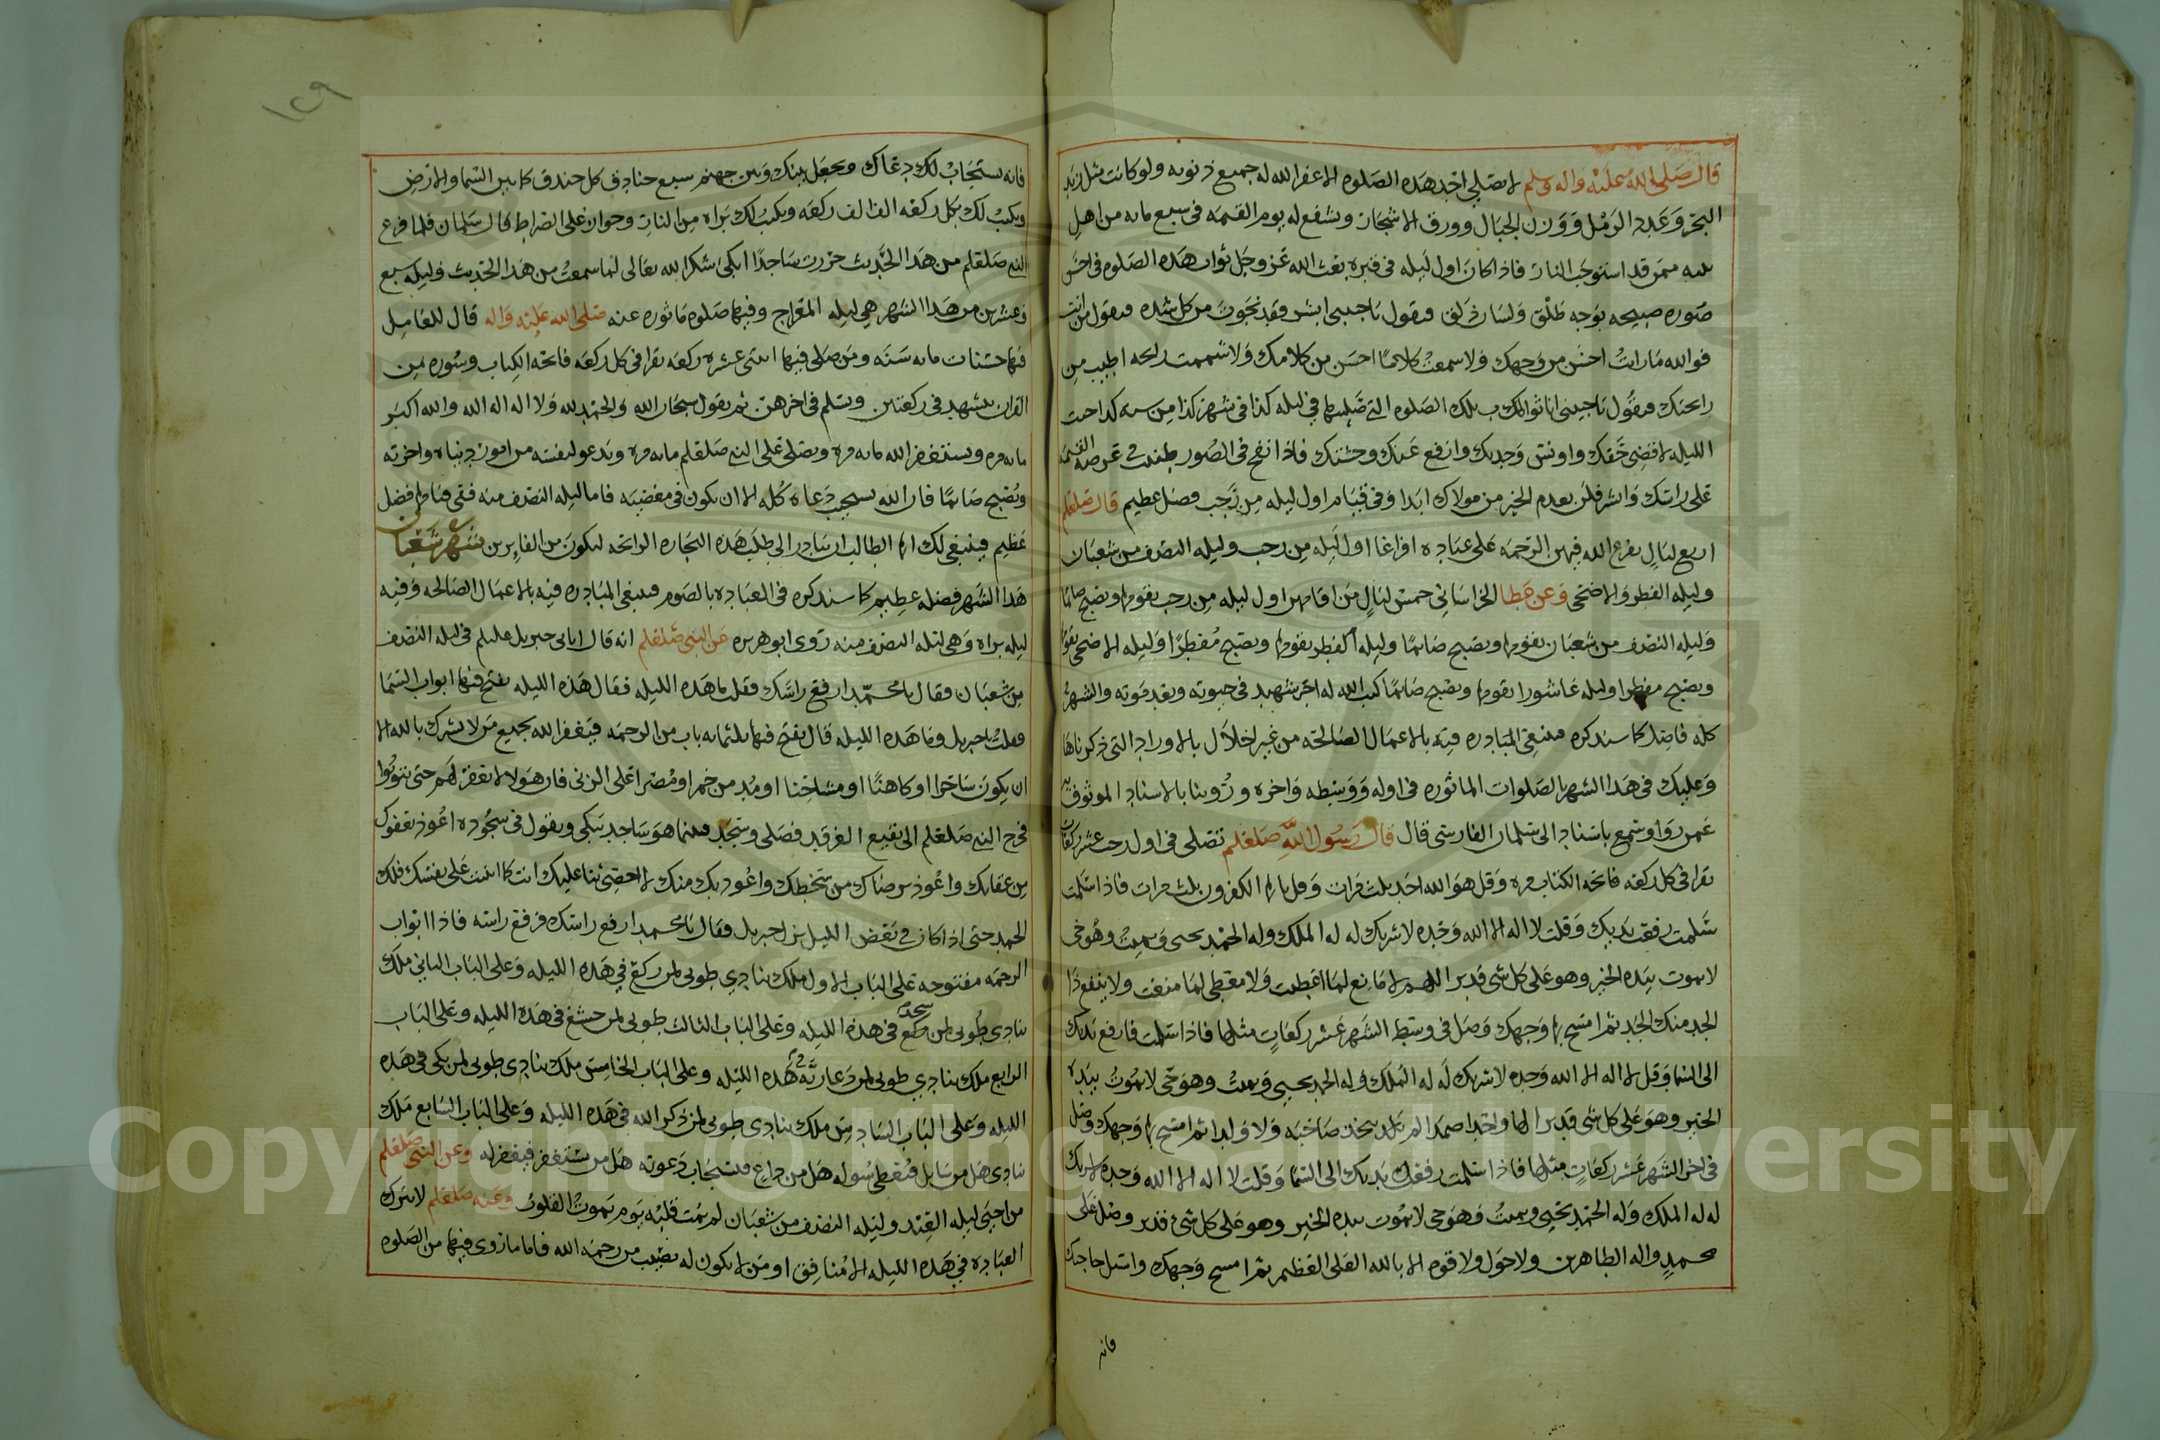 قال صلى الله عليه واله وسلم لا يصلي احد هذه الصلوه الا غفر الله له جميع ذنوبه ولو كانت مثل زبد
البحر وعدد الرمل ووزن الجبال وورق الاشجار ويشفع له يوم القيمه في سبع مايه من اهل
بيته ممن قد استوجب النار فاذا كان اول ليله في قبره بعث الله عز وجل ثواب هذه الصلوه في احسن
صوره صبيحه بوجه طلق ولسان ذلق فيقول يا حبيبي ابشر فقد نجوت من كل شده فيقول من انت
فوالله ما رايت احسن من وجهك ولا سمعت كلاما احسن من كلامك ولا شممت رايحه اطيب من
رايحتك فيقول يا حبيبي انا ثواب تلك الصلوه التي صليتها في ليله كذا في شهر كذا من سنه كذا جئت
الليله لاقضي حقك واونس وحدتك وارفع عنك وحشتك فاذا نفخ في الصور ظللت في عرصه القيمه
على راسك وابشر فلن تعدم الخير من مولاك ابدا وفي قيام اول ليله من رجب فضل عظيم قال صلعلم
اربع ليال يفرغ الله فيهن الرحمه على عباده افراغا اول ليله من رجب وليله النصف من شعبان
وليله الفطر والاضحى وعن عطا الخراساني خمس ليال من اقامهن اول ليله من رجب يقومها ويصبح صائما
وليله النصف من شعبان يقومها ويصبح صائما وليله الفطر يقومها ويصبح مفطرا وليله الاضحى يقومها
ويصبح مفطرا وليله عاشورا يقومها ويصبح صائما كتب الله له اجر شهيد في حيوته وبعد موته والشهر
كله فاضل كما سنذكره فينبغي المبادره فيه بالاعمال الصالحه من غير اخلال بالاوراد التي ذكرناها
وعليك في هذا الشهر بالصلوات الماثوره في اوله ووسطه واخره وروينا بالاسناد الموثوق به
عمن رواه وسمع باسناد الى سلمان الفارسي قال قال رسول الله صلعلم تصلي في اول رجب عشر ركعات
تقرا في كل ركعه فاتحه الكتاب مره وقل هو الله احد ثلث مرات وقل يا ايها الكفرون ثلث مرات فاذا سلمت
سلمت رفعت يديك وقلت لا اله الا الله وحده لا شريك له له الملك وله الحمد يحيى ويميت وهو حي
لا يموت بيده الخير وهو على كل شي قدير اللهم لا مانع لما اعطيت ولا معطي لما منعت ولا ينفع ذا
الجد منك الجد ثم امسح بها وجهك وصل في وسط الشهر عشر ركعات مثلها فاذا سلمت فارفع يديك
الى السما وقل لا اله الا الله وحده لا شريك له له الملك وله الحمد يحيي ويميت وهو حي لا يموت بيده
الخير وهو على كل شي قدير الها واحدا صمدا لم يتخذ صاحبه ولا ولدا ثم امسح بها وجهك وصل
في اخر الشهر عشر ركعات مثلها فاذا سلمت رفعت يديك الى السما وقلت لا اله الا الله وحده لا شريك
له له الملك وله الحمد يحيي ويميت وهو حي لا يموت بيده الخير وهو على كل شي قدير وصل على
محمد واله الطاهرين ولا حول ولا قوه الا بالله العلي العظيم ثم امسح وجهك واسئل حاجتك
فانه
١٢٩
فانه يستجاب لك دعاك ويجعل بينك وبين جهنم سبع خنادق كل خندق كما بين السما والارض
ويكتب لك بكل ركعه الف الف ركعه ويكتب لك براه من النار وجواز على الصراط قال سلمان فلما فرغ
النبي صلعلم من هذا الحديث خررت ساجدا ابكي شكرا لله تعالى لما سمعت من هذا الحديث وليله سبع
وعشرين من هذا الشهر هي ليله المعراج وفيها صلوه ماثوره عنه صلى الله عليه واله قال للعامل
فيها حسنات مايه سنه ومن صلى فيها اثنتي عشره ركعه يقرا في كل ركعه فاتحه الكتاب وسوره من
القران يتشهد في ركعتين ويسلم في اخرهن ثم يقول سبحان الله والحمد لله ولا اله الا الله والله اكبر
مايه مره ويستغفر الله مايه مره ويصلي على النبي صلعلم مايه مره ويدعو لنفسه من امور دنياه واخرته
ويصبح صائما فان الله يستجيب دعاه كله الا ان يكون في معصيه فاما ليله النصف منه ففي قيامها فضل
عظيم فينبغي لك ايها الطالب ان تبادر الى طلب هذه التجاره الرابحه لتكون من الفايزين شهر شعبان
هذا الشهر فضله عظيم كما سنذكره في العباده بالصوم فينبغي المبادره فيه بالاعمال الصالحه وفيه
ليله براه وهي ليله النصف منه روى ابو هريره عن النبي صلعلم انه قال اتاني جبريل عليلم في ليله النصف
من شعبان فقال يا محمد ارفع راسك فقلت ما هذه الليله فقال هذه الليله يفتح فيها ابواب السما
فقلت يا جبريل وما هذه الليله قال يفتح فيها ثلثمائه باب من الرحمه فيغفر الله لجميع من لا يشرك بالله الا
ان يكون ساحرا او كاهنا او مشاحنا او مدمن خمر او مصرا على الزنى فان هولا لا يغفر لهم حتى يتوبوا
فخرج النبي صلعلم الى بقيع الغرقد فصلى وسجد فبينما هو ساجد يبكي ويقول في سجوده اعوذ بعفوك
من عقابك واعوذ برضاك من سخطك واعوذ بك منك لا احصي ثنا عليك انت كما اثنيت على نفسك فلك
الحمد حتى اذا كان في بعض الليل نزل جبريل فقال يا محمد ارفع راسك فرفع راسه فاذا ابواب
الرحمه مفتوحه على الباب الاول ملك ينادي طوبى لمن ركع في هذه الليله وعلى الباب الثاني ملك
ينادي طوبى لمن سجد في هذه الليله وعلى الباب الثالث طوبى لمن خشع في هذه الليله وعلى الباب
الرابع ملك ينادي طوبى لمن دعا ربه في هذه الليله وعلى الباب الخامس ملك ينادي طوبى لمن بكى في هذه
الليله وعلى الباب السادس ملك ينادي طوبى لمن ذكر الله في هذه الليله وعلى الباب السابع ملك
ينادي هل من سايل فيعطى سوله هل من داع فتستجاب دعوته هل من مستغفر فيغفر له وعن النبي صلعلم
من احيى ليله العيد وليله النصف من شعبان لم يمت قلبه يوم تموت القلوب وعنه صلعلم لا يترك
العباده في هذه الليله الا منافق او من لا يكون له نصيب من رحمه الله فاما ما روي فيها من الصلوه
Copyright © King Saud University